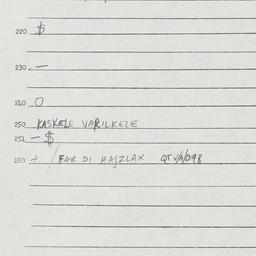 220 $
230 —
240 O
250 KASKELE VARILKELE
252 — $
260 + / FAR DI MAJZLAX